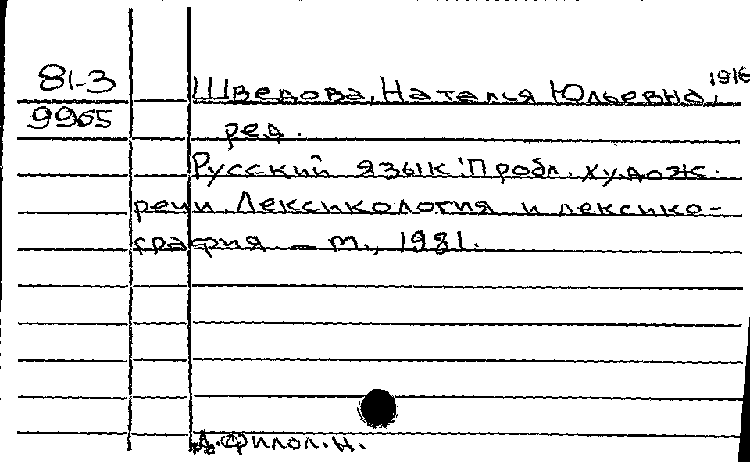 81-3
9965
Шведова, Наталья Юльевна, 1916
ред.
Русский язык: Пробл. худож.
речи. Лексикология и лексико-
графия – м., 1981.
д.филол.н.